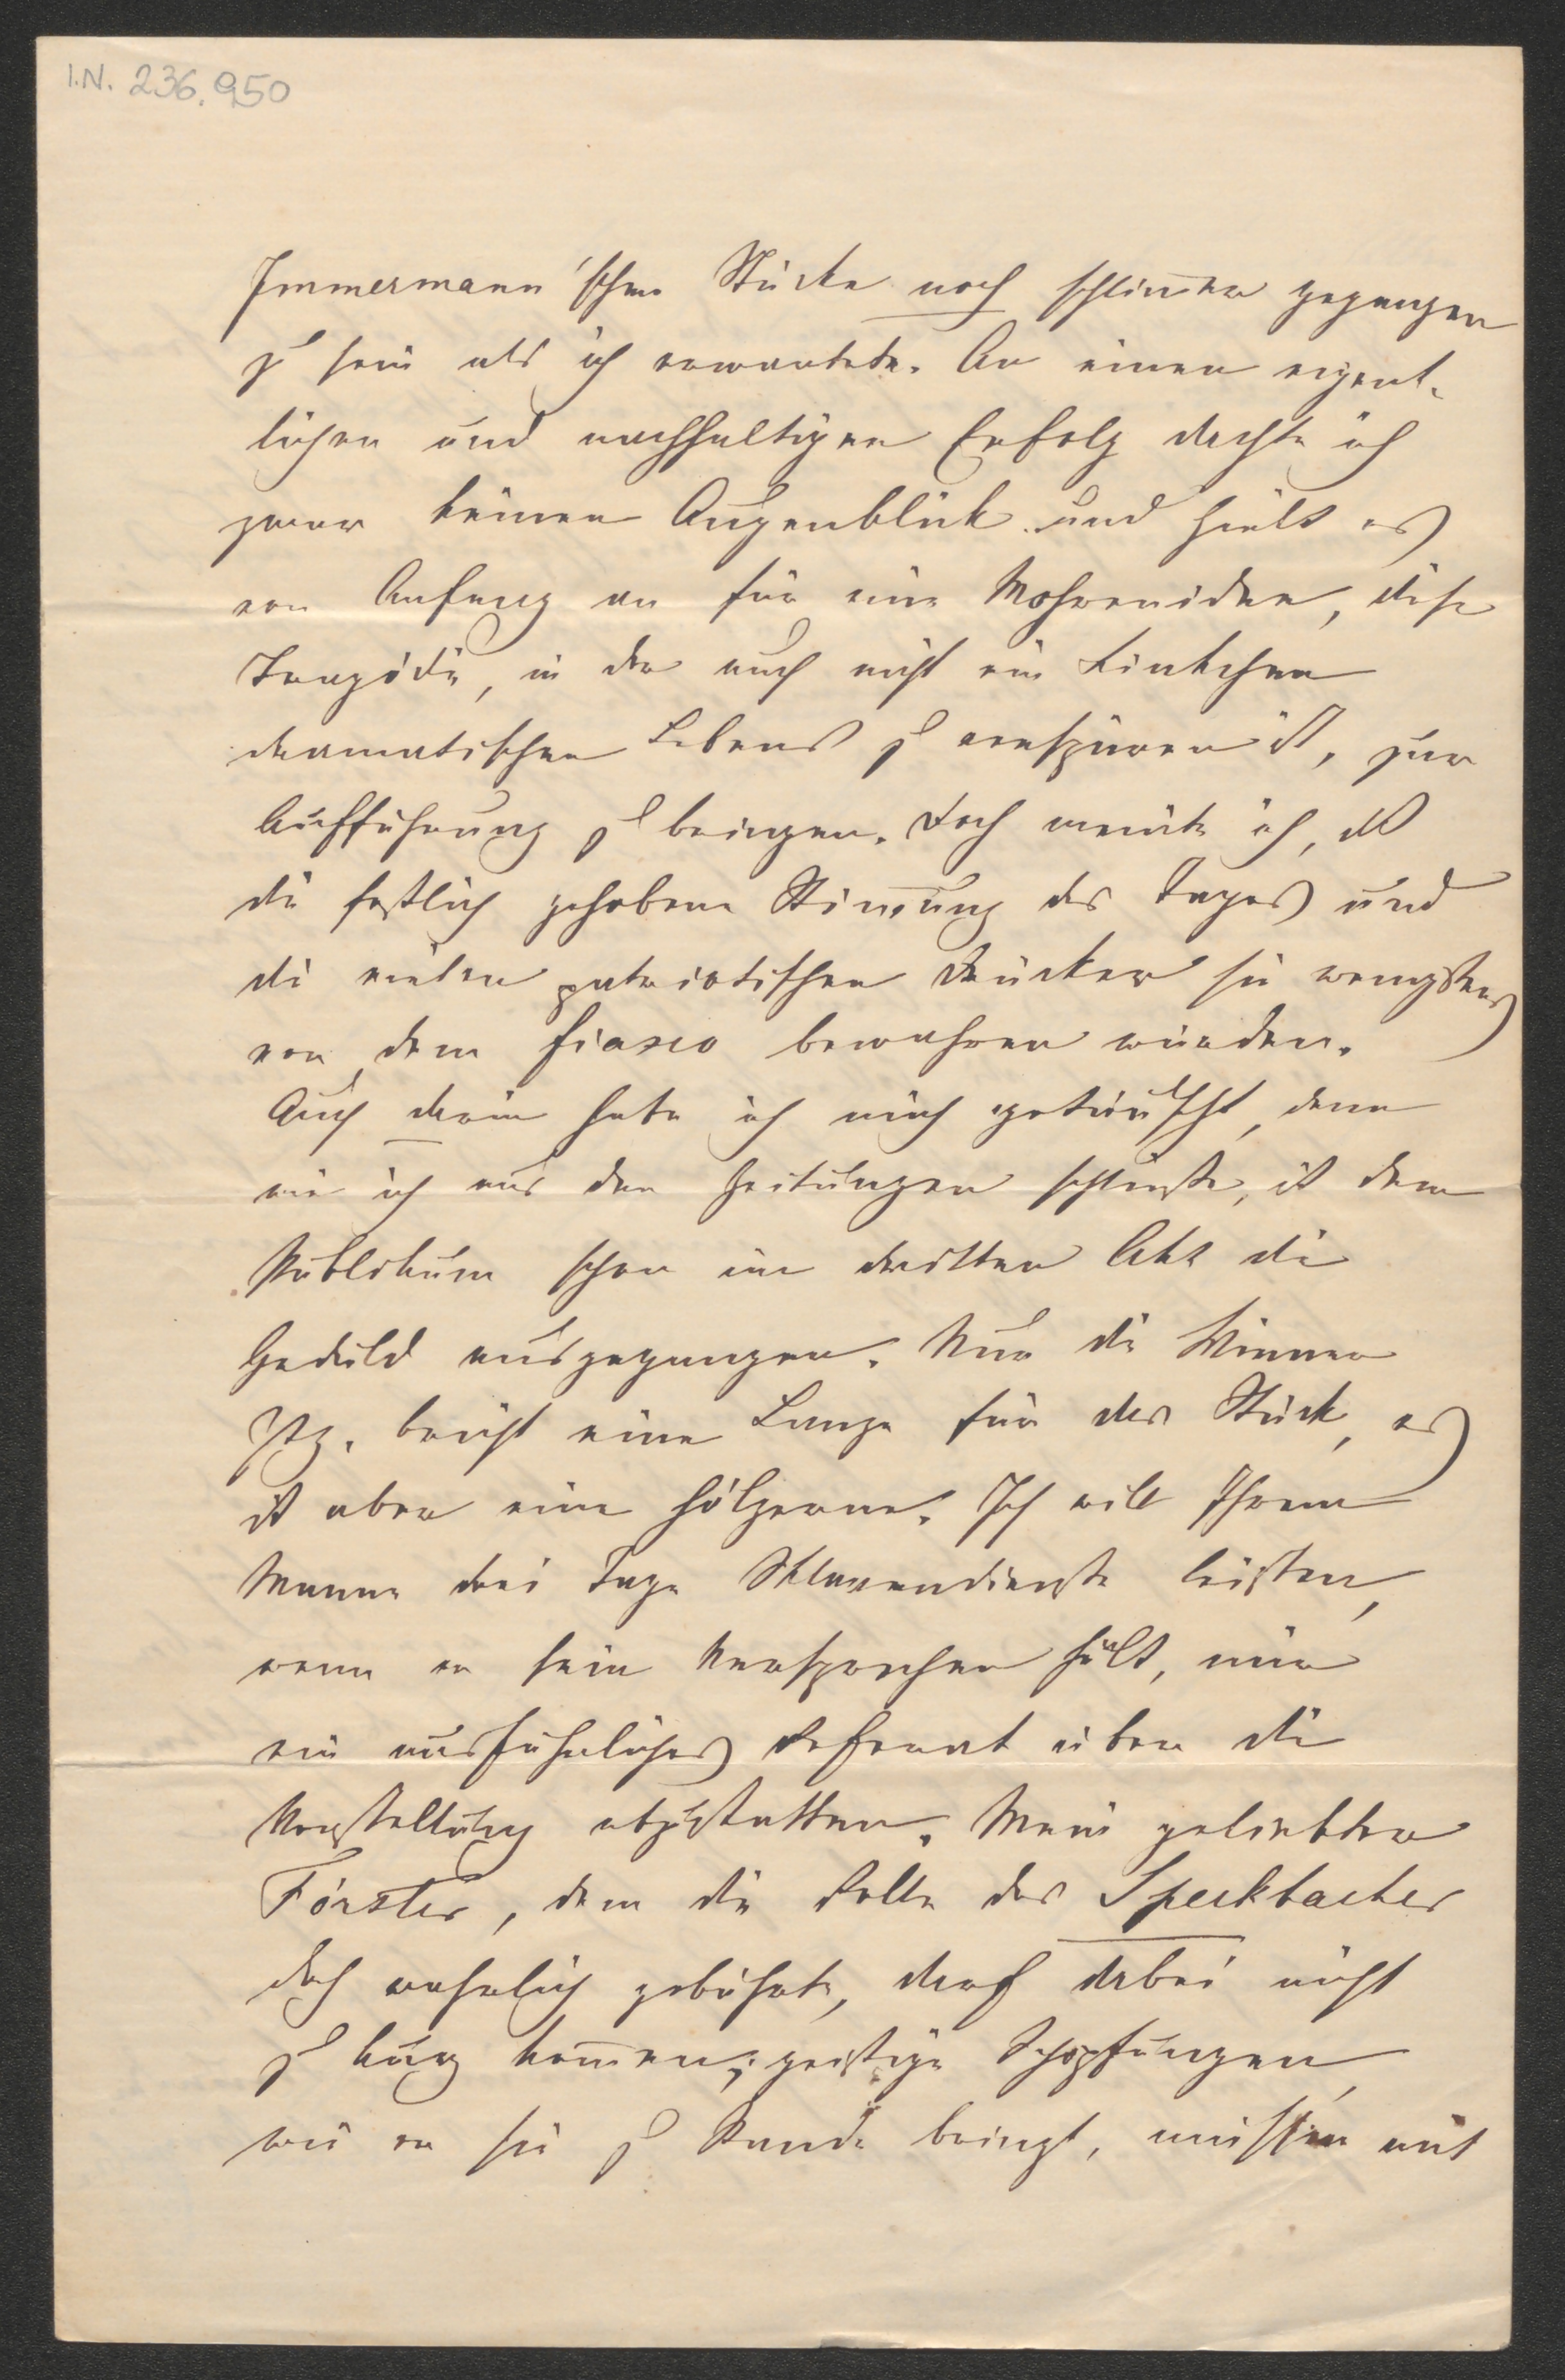 I.N. 236.950
Immermann'schen Stücke noch schlim̅er gegangen
zu sein als ich erwartete. An einen eigent-
lichen und nachhaltigen Erfolg dachte ich
zwar keinen Augenblick und hielt es
von Anfang an für eine Mohrenidee, diese
Tragödie, in der auch nicht ein Fünkchen
dramatischen Lebens zu verspüren ist, zur
Aufführung zu bringen. Doch meinte ich, daß
die festlich gehobene Stim̅ung des Tages und
die vielen patriotischen Drücker sie wenigstens
vor dem Fiasco bewahren würden.
Auch darin habe ich mich getäuscht, denn
wie ich aus den Zeitungen schließe, ist dem
Publikum schon im dritten Akt die
Geduld ausgegangen. Nur die Wiener
Ztg. bricht eine Lanze für das Stück, es
ist aber eine hölzerne. Ich will Ihrem
Manne drei Tage Sklavendienste leisten,
wenn er sein Versprechen hält, mir
ein ausführliches Referat über die
Vorstellung abzustatten. Mein geliebter
Förster, dem die Rolle des Speckbacher
doch wahrlich gebührte, darf dabei nicht
zu kurz kom̅en; geistige Schöpfungen,
wie er sie zu Stande bringt, müssen mit